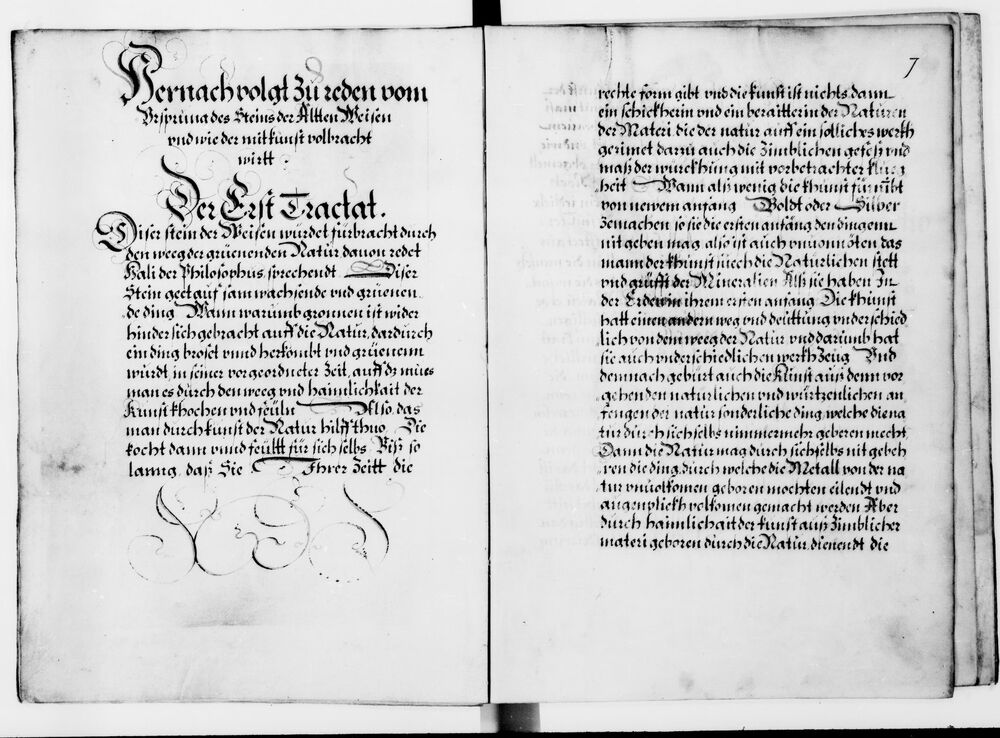 Hernach volgt zu reden vom
Vrsprung des Steins der Altten Weisen
vnd wie der mit kunst volbracht
wirtt
Der Erst Tractat.
Diser stein der Weisen würdet fürbracht durch
den weeg der grüenenden Natur, dauon redet
Hali der Philosophus sprechendt Diser
Stein geet auf sam wachsende vnd grüenen
de ding Wann warumb gronnen ist wider
hinder sich gebracht auff die Natur, dardurch
ein ding broset vnnd herkombt vnd grüenenn
würdt, in seiner vorgeordneter Zeit, auff dz mües
man es durch den weeg vnd haimlichkait der
Kunst khochen vnd feüln Also, das
man durch kunst der Natur hilff thuo, Die
kocht dann vnnd feültt für sich selbs Biß so
lanng, daß Sie Ihrer Zeitt die
7
rechte form gibt vnd die kunst ist nichts dann
ein schickherin vnd ein beraitterin der Naturen
der Materi, die der natur auff ein solliches werkh
gerimet darzu auch die Zimblichen gefeß vnd
maß der würckhung mit vorbetrachter klueg
heit Wann alß wenig die khunst für gibt
von newem anfang Goldt oder Silber
Zemachen so sie die ersten anfäng den dingenn
nit geben mag, also ist auch vnuonnöten das
mann der khunst suech die Natürlichen stett
vnd grüfft der Mineralien Alß sie haben In
der Erden in ihrem ersten anfang Die khunst
hatt einen andern weg vnd deüttung vnderschied
lich von dem weeg der Natur vnd darumb hat
sie auch vnderschiedlichen werkh Zeüg Vnd
demnach gebürt auch die Kunst auß denn vor
gehenden naturlichen vnd würtzenlichen an
fengen der natur sonderliche ding, welche die na
tur durch sich selbs nimmermehr geberen mecht
Dann die Natur mag durch sich selbs nit gebeh
ren die ding, durch welche die Metall von der na
tur vnuolkomen geboren mochten eilendt vnd
augenplickh volkomen gemacht werden Aber
durch haimlichait der kunst auß Zimblicher
materi geboren durch die Natur, dienendt die